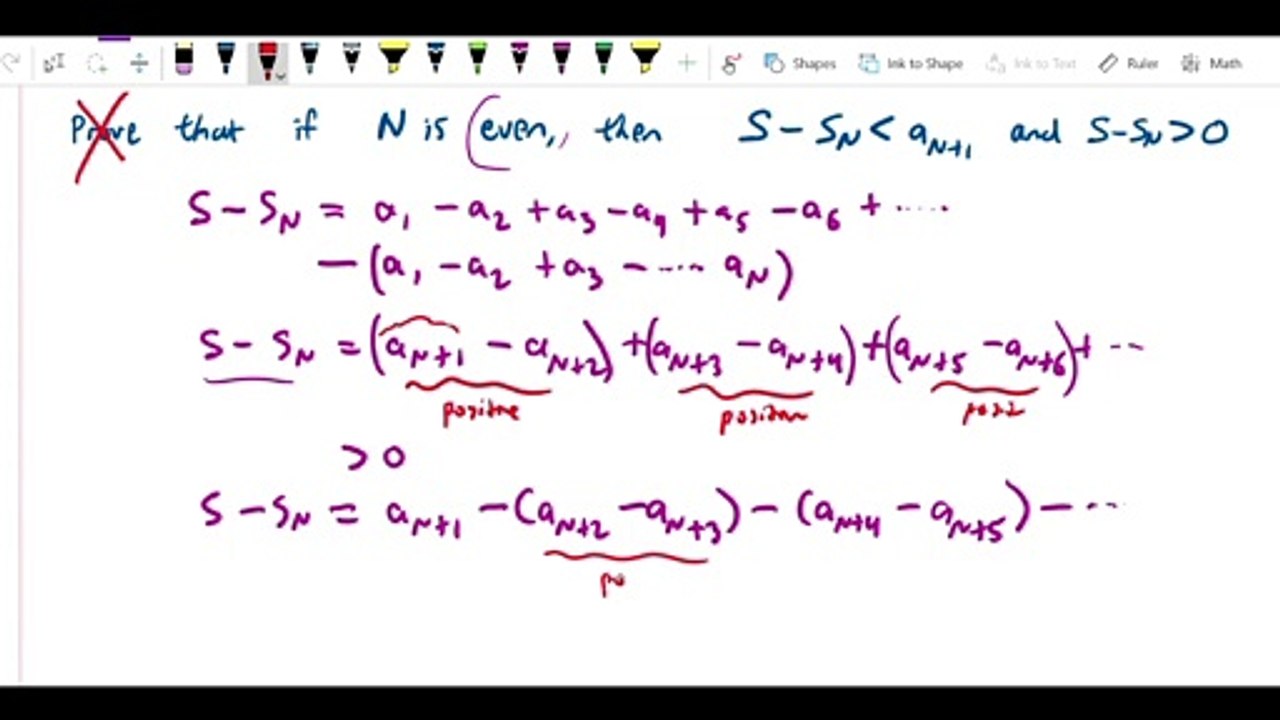 Shapes Ink to Shape Ink to Text Ruler Math
Prove that if N is (even, then S - S_N < a_{N+1} and S - S_N > 0
S - S_N = a_1 - a_2 + a_3 - a_4 + a_5 - a_6 + .....
- (a_1 - a_2 + a_3 - ..... a_N)
S - S_N = (a_{N+1} - a_{N+2}) + (a_{N+3} - a_{N+4}) + (a_{N+5} - a_{N+6}) + ...
positive positive
> 0
S - S_N = a_{N+1} - (a_{N+2} - a_{N+3}) - (a_{N+4} - a_{N+5}) - ....
po